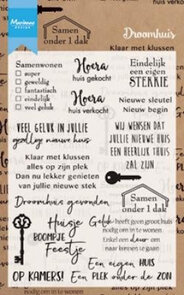 Marianne
DESIGN
Droomhuis
Samen
onder 1 dak
Klaar met klussen
Samenwonen
super
geweldig
fantastisch
eindelijk
veel geluk
Hoera
huis gekocht
Hoera
huis verkocht
Eindelijk
een eigen
STEKKIE
Nieuwe sleutel
Nieuw begin
VEEL GELUK IN JULLIE
geweldig nieuwe huis
Klaar met klussen
alles op zijn plek
Dan nu lekker genieten
van jullie nieuwe stek
WIJ WENSEN DAT
JULLIE NIEUWE HUIS
EEN HEERLIJK THUIS
ZAL ZIJN
Droomhuis gevonden
Samen
onder 1 dak
Huisje
BOOMPJE
Feestje
Geluk heeft geen groot huis
nodig om in te wonen
Enkel een deur om
naar binnen te gaan
Een eigen huis
OP KAMERS! Een plek onder de zon
nodig om in te wonen